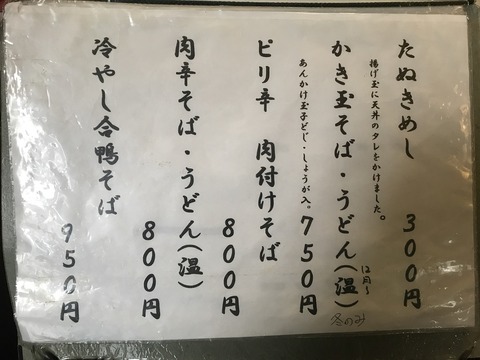 たぬきめし 300円
揚げ玉に天丼のタレをかけました。
かき玉そば・うどん(温) 750円
12月〜
冬のみ
あんかけ玉子とじ・しょうが入。
ピリ辛 肉付けそば 800円
肉辛そば・うどん(温) 800円
冷やし合鴨そば 950円